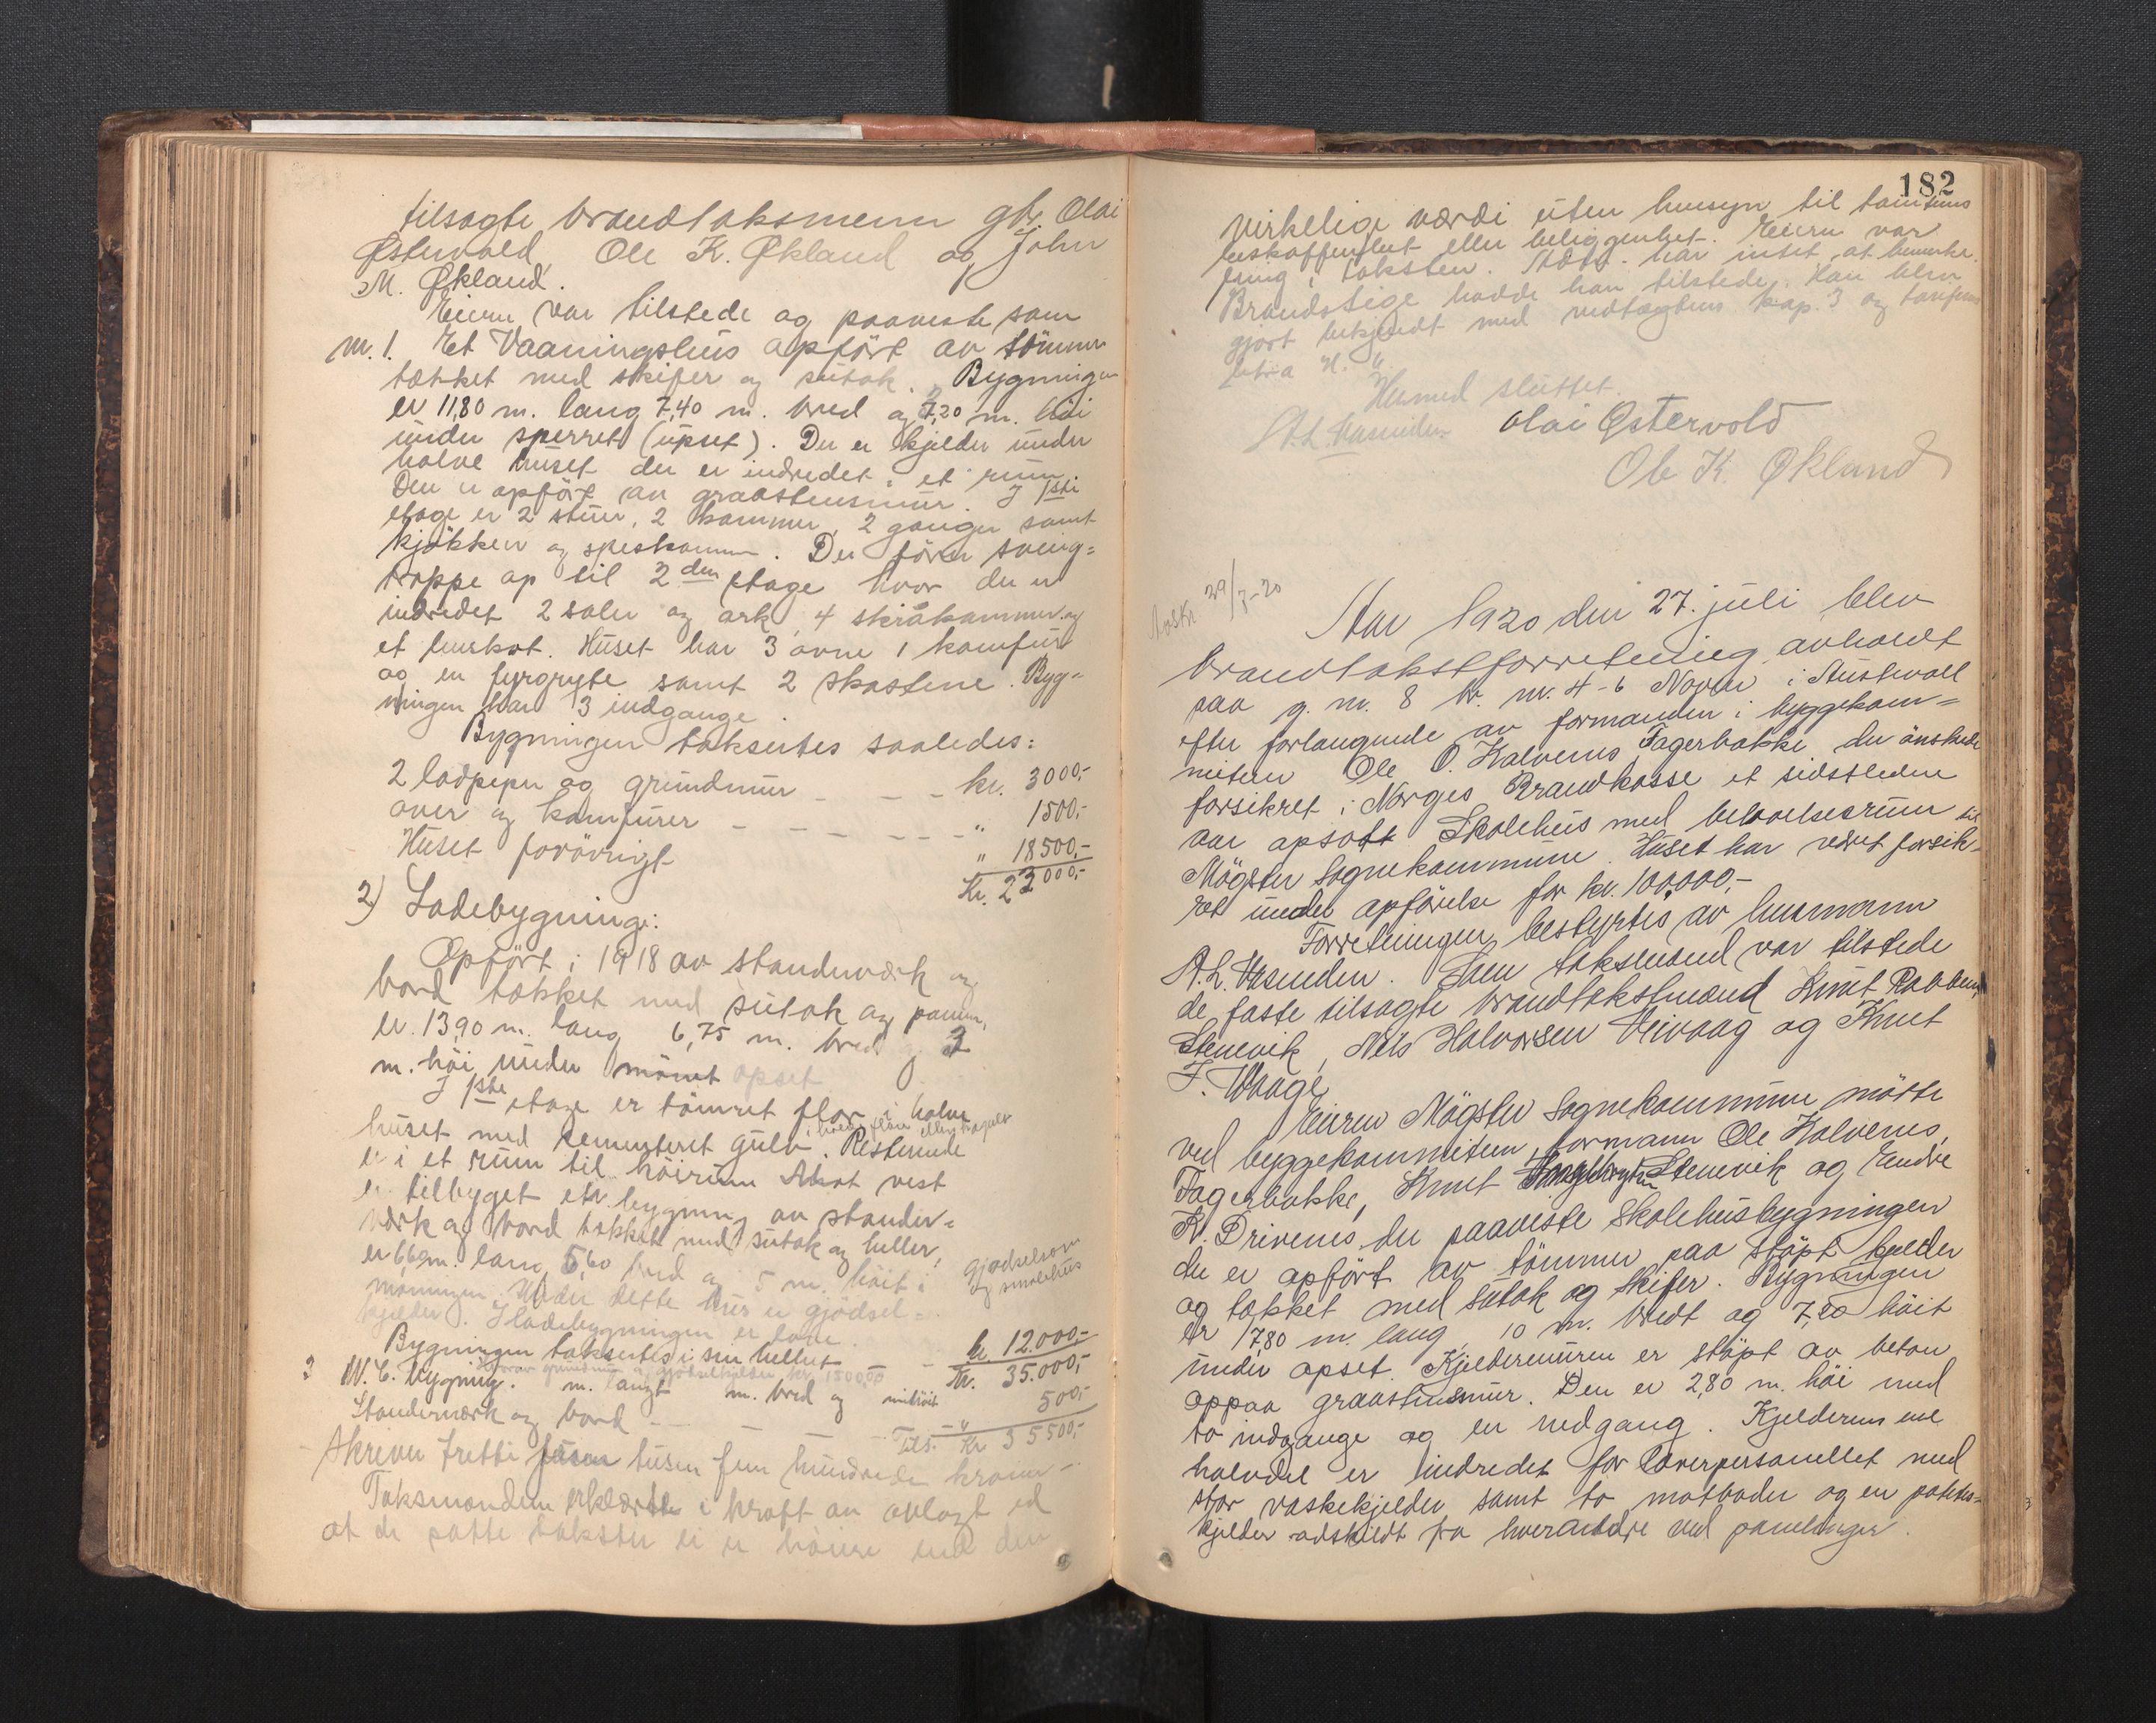 tilsagte brandtaksmenn gbr. Olai
Østervold, Ole K. Økland og John
M. Økland.
Eieren var tilstede og paaviste som
m. 1. Et Vaaningshus opfört av tömmer
tækket med skifer og sutak. Bygningen
er 11,80 m. lang 7,40 m. bred og 7,20 m. höi
under sperret (upset). Der er kjelder under
halve huset der er indredet i et rum.
Den er opfört av graastensmur. I 1ste
etage er 2 stuer, 2 kammer, 2 ganger samt
kjøkken og speskammer. Der förer sving=
trappe op til 2den etage hvor der er
indredet 2 saler og ark, 4 skråkammer og
et Huset har 3 ovne 1 komfur
og en fyrgryte samt 2 skastene. Byg=
ningen har 3 indgange.
Bygningen taksertes saaledes:
2 ladpiper og grundmur - - - kr. 3000,-
over og komfurer - - - - - " 1500,-
Huset forövrigt " 18500,-
Kr. 23000,-
2) Ladebygning:
Opfört i 1918 av standerværk og
bord tækket med sutak og panner,
er 13,90 m. lang 6,75 m. bred 3
m. höi under mönet opset
I 1ste etage er tömret flor i halve
huset med cementeret gulv. Resterende
er i et rum til höirum Mot vest
er tilbyget en bygning av stander=
værk og bord tækket med sutak og heller,
er 6,60 m. lang 5,60 bred og 5 m. höit i
möningen. Under dette hus er gjödsel=
kjelder. I ladebygningen er lave
gjødselrom
og smolehus
Bygningen taksertes i sin helhet - kr. 12.000,-
hvorav grundmur og gjödselkjelder kr. 1500,00
Kr. 35.000,-
3 W.C. bygning. m. langt m. bred og m. höit
Standerværk og bord - 500,-
Tils. Kr 35500,-
Skriver tretti fem tusen fem hundrede kroner -
Taksmændene erklærte i kraft av avlagt ed
at de satte takster ei er höiere end den
182
virkelige værdi uten hensyn til tomtens
beskaffenhet eller beliggenhet. Eieren var
Brandstige hadde han tilstede. Han blev
gjort bekjendt med vedtægtens kap. 3 og tariffens
litra H.
Hermed sluttet.
A. L. Vasenden Olai Østervold
Ole K. Økland
29/7-20
Aar 1920 den 27. juli blev
brandtakstforretning avholdt
paa g. nr. 8 br. nr. 4-6 i Austevoll
efter forlangende av formanden i byggekom=
miteen Ole O. Kalvenes, Fagerbakke, der önskede
forsikret i Norges Brandkasse et sidstledne
aar opsatt Skolehus med bekvelserum til
Mögster Sognekommune. Huset har været forsik=
ret under opförelse for kr. 100.000,-
Forretningen bestyrtes av lensmann
A. L. Vasenden. Som taksmænd var tilstede
de faste tilsagte brandtakstmænd Knut
Stenevik, Nils Halvorsen Veivaag og Knut
F. Waage
Eieren Mögster Sognekommune mötte
ved byggekommiteen, formann Ole Kalvenes,
Fagerbakke, Knut Stenevik og Endre
K. Drivenes der paaviste Skolehusbygningen
der er opfört av tömmer paa stöpt kjelder
og tækket med sutak og skifer. Bygningen
er 17,80 m. lang, 10 m. bredt og 7,20 höit
under opset. Kjeldermuren er stöpt av beton
oppaa graastensmur. Den er 2,80 m. höi med
to indgange og en nedgang. Kjelderens ene
halvdel er indredet for lærerpersonellet med
stor vaskekjelder samt to matboder og en potetes=
kjelder adskildt fra hverandre ved panelinger.